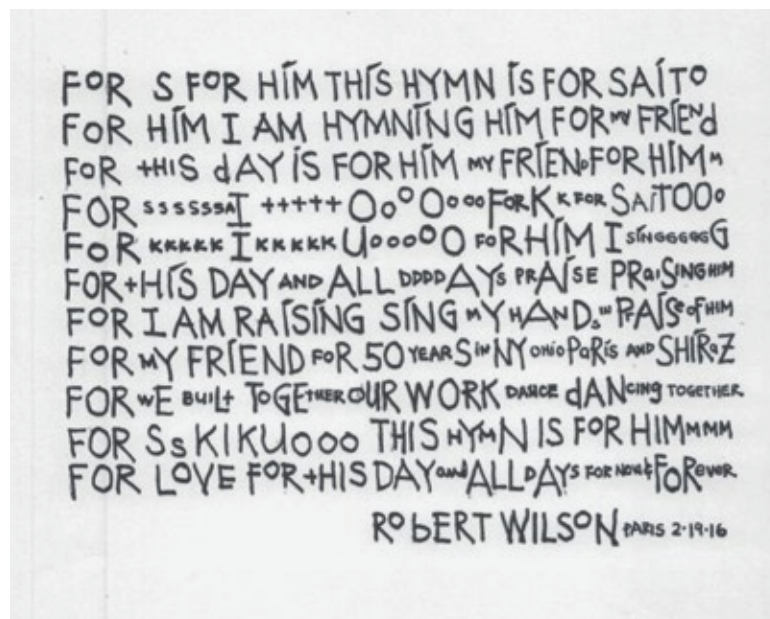 FOR S FOR HIM THIS HYMN IS FOR SAITO
FOR HIM I AM HYMNING HIM FOR MY FRIENd
FOR tHIS dAY IS FOR HIM MY FRIEND FOR HIM M
FOR ssssssAI +++++ OoOOooo FOR K K FOR SAiTOOo
FOR KKKKK I KKKKK UoooOO FOR HIM I SINGGGGGG
FOR tHIS DAY AND ALL DDDDAYs PRAISE PRaISING HIM
FOR I AM RAISING SING MY HANDs IN PRAISe oF HIM
FOR MY FRIEND FoR 50 YEARS iN NY OHiO PaRis AND SHIRaZ
FOR wE BUiLt TOGETHER OUR WORK DANCE dANcing TOGETHER.
FOR SsKIKUooo THIS HYMN IS FOR HIMMMM
FOR LOVE FOR tHIS DAY and ALL DAYs FOR NOW & FOR eveR.
ROBERT WILSON PARIS 2·19·16